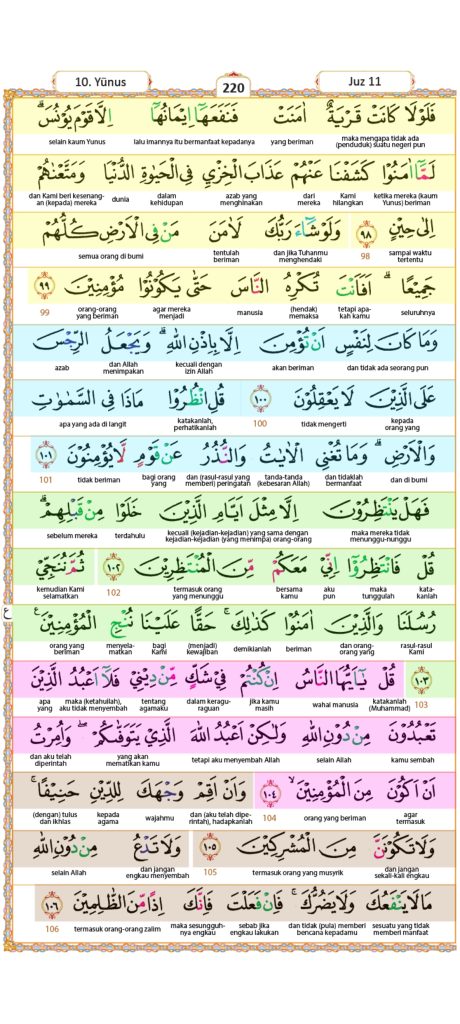 10. Yūnus 220 Juz 11
فَلَوْلَا كَانَتْ قَرْيَةٌ اٰمَنَتْ فَنَفَعَهَآ اِيْمَانُهَآ اِلَّا قَوْمَ يُوْنُسَۗ
maka mengapa tidak ada (penduduk) suatu negeri pun yang beriman lalu imannya itu bermanfaat kepadanya selain kaum Yunus
لَمَّآ اٰمَنُوْا كَشَفْنَا عَنْهُمْ عَذَابَ الْخِزْيِ فِى الْحَيٰوةِ الدُّنْيَا وَمَتَّعْنٰهُمْ
ketika mereka (kaum Yunus) beriman Kami hilangkan dari mereka azab yang menghinakan dalam kehidupan dunia dan Kami beri kesenang-an (kepada) mereka
اِلٰى حِيْنٍ ٩٨ وَلَوْ شَاۤءَ رَبُّكَ لَاٰمَنَ مَنْ فِى الْاَرْضِ كُلُّهُمْ
sampai waktu tertentu 98 dan jika Tuhanmu menghendaki tentulah beriman semua orang di bumi
جَمِيْعًاۗ اَفَاَنْتَ تُكْرِهُ النَّاسَ حَتّٰى يَكُوْنُوْا مُؤْمِنِيْنَ ٩٩
seluruhnya tetapi apa-kah kamu (hendak) memaksa manusia agar mereka menjadi orang-orang yang beriman 99
وَمَا كَانَ لِنَفْسٍ اَنْ تُؤْمِنَ اِلَّا بِاِذْنِ اللّٰهِۗ وَيَجْعَلُ الرِّجْسَ
dan tidak ada seorang pun akan beriman kecuali dengan izin Allah dan Allah menimpakan azab
عَلَى الَّذِيْنَ لَا يَعْقِلُوْنَ ١٠٠ قُلِ انْظُرُوْا مَاذَا فِى السَّمٰوٰتِ
kepada orang yang tidak mengerti 100 katakanlah, perhatikanlah apa yang ada di langit
وَالْاَرْضِۗ وَمَا تُغْنِى الْاٰيٰتُ وَالنُّذُرُ عَنْ قَوْمٍ لَّا يُؤْمِنُوْنَ ١٠١
dan di bumi dan tidaklah bermanfaat tanda-tanda (kebesaran Allah) dan (rasul-rasul yang memberi) peringatan bagi orang yang tidak beriman 101
فَهَلْ يَنْتَظِرُوْنَ اِلَّا مِثْلَ اَيَّامِ الَّذِيْنَ خَلَوْا مِنْ قَبْلِهِمْۗ
maka mereka tidak menunggu-nunggu kecuali (kejadian-kejadian) yang sama dengan kejadian-kejadian (yang menimpa) orang-orang terdahulu sebelum mereka
قُلْ فَانْتَظِرُوْٓا اِنِّيْ مَعَكُمْ مِّنَ الْمُنْتَظِرِيْنَ ١٠٢ ثُمَّ نُنَجِّيْ
kata-kanlah maka tunggulah aku pun bersama kamu termasuk orang yang menunggu 102 kemudian Kami selamatkan
رُسُلَنَا وَالَّذِيْنَ اٰمَنُوْا كَذٰلِكَۚ حَقًّا عَلَيْنَا نُنْجِ الْمُؤْمِنِيْنَ ࣖ ع
rasul-rasul Kami dan orang-orang yang beriman demikianlah (menjadi) kewajiban bagi Kami menyela-matkan orang yang beriman
١٠٣ قُلْ يٰٓاَيُّهَا النَّاسُ اِنْ كُنْتُمْ فِيْ شَكٍّ مِّنْ دِيْنِيْ فَلَآ اَعْبُدُ الَّذِيْنَ
103 katakanlah (Muhammad) wahai manusia jika kamu masih dalam keragu-raguan tentang agamaku maka (ketahuilah), aku tidak menyembah apa yang
تَعْبُدُوْنَ مِنْ دُوْنِ اللّٰهِ وَلٰكِنْ اَعْبُدُ اللّٰهَ الَّذِيْ يَتَوَفّٰىكُمْ ۖ وَاُمِرْتُ
kamu sembah selain Allah tetapi aku menyembah Allah yang akan mematikan kamu dan aku telah diperintah
اَنْ اَكُوْنَ مِنَ الْمُؤْمِنِيْنَۙ ١٠٤ وَاَنْ اَقِمْ وَجْهَكَ لِلدِّيْنِ حَنِيْفًاۚ
agar termasuk orang yang beriman 104 dan (aku telah dipe-rintah), hadapkanlah wajahmu kepada agama (dengan) tulus dan ikhlas
وَلَا تَكُوْنَنَّ مِنَ الْمُشْرِكِيْنَ ١٠٥ وَلَا تَدْعُ مِنْ دُوْنِ اللّٰهِ
dan jangan sekali-kali engkau termasuk orang yang musyrik 105 dan jangan engkau menyembah selain Allah
مَا لَا يَنْفَعُكَ وَلَا يَضُرُّكَۚ فَاِنْ فَعَلْتَ فَاِنَّكَ اِذًا مِّنَ الظّٰلِمِيْنَ ١٠٦
sesuatu yang tidak memberi manfaat dan tidak (pula) memberi bencana kepadamu sebab jika engkau lakukan maka sesunggguh-nya engkau termasuk orang-orang zalim 106